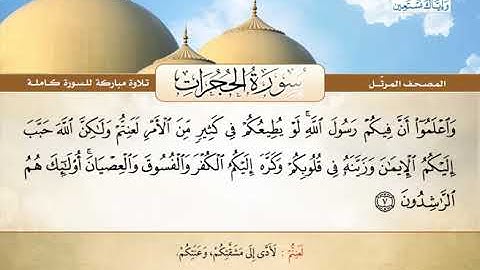 وَإِيَّاكَ نَسْتَعِينُ
المصحف المرتّل
سُورَةُ الحُجُرَاتِ
تلاوة مباركة للسورة كاملة
وَٱعْلَمُوٓا۟ أَنَّ فِيكُمْ رَسُولَ ٱللَّهِ ۚ لَوْ يُطِيعُكُمْ فِى كَثِيرٍ مِّنَ ٱلْأَمْرِ لَعَنِتُّمْ وَلَٰكِنَّ ٱللَّهَ حَبَّبَ
إِلَيْكُمُ ٱلْإِيمَٰنَ وَزَيَّنَهُۥ فِى قُلُوبِكُمْ وَكَرَّهَ إِلَيْكُمُ ٱلْكُفْرَ وَٱلْفُسُوقَ وَٱلْعِصْيَانَ ۚ أُو۟لَٰٓئِكَ هُمُ
ٱلرَّٰشِدُونَ ٧
لَعَنِتُّمْ : لَأَدَّى إِلَى مَشَقَّتِكُمْ، وَعَنَتِكُمْ.